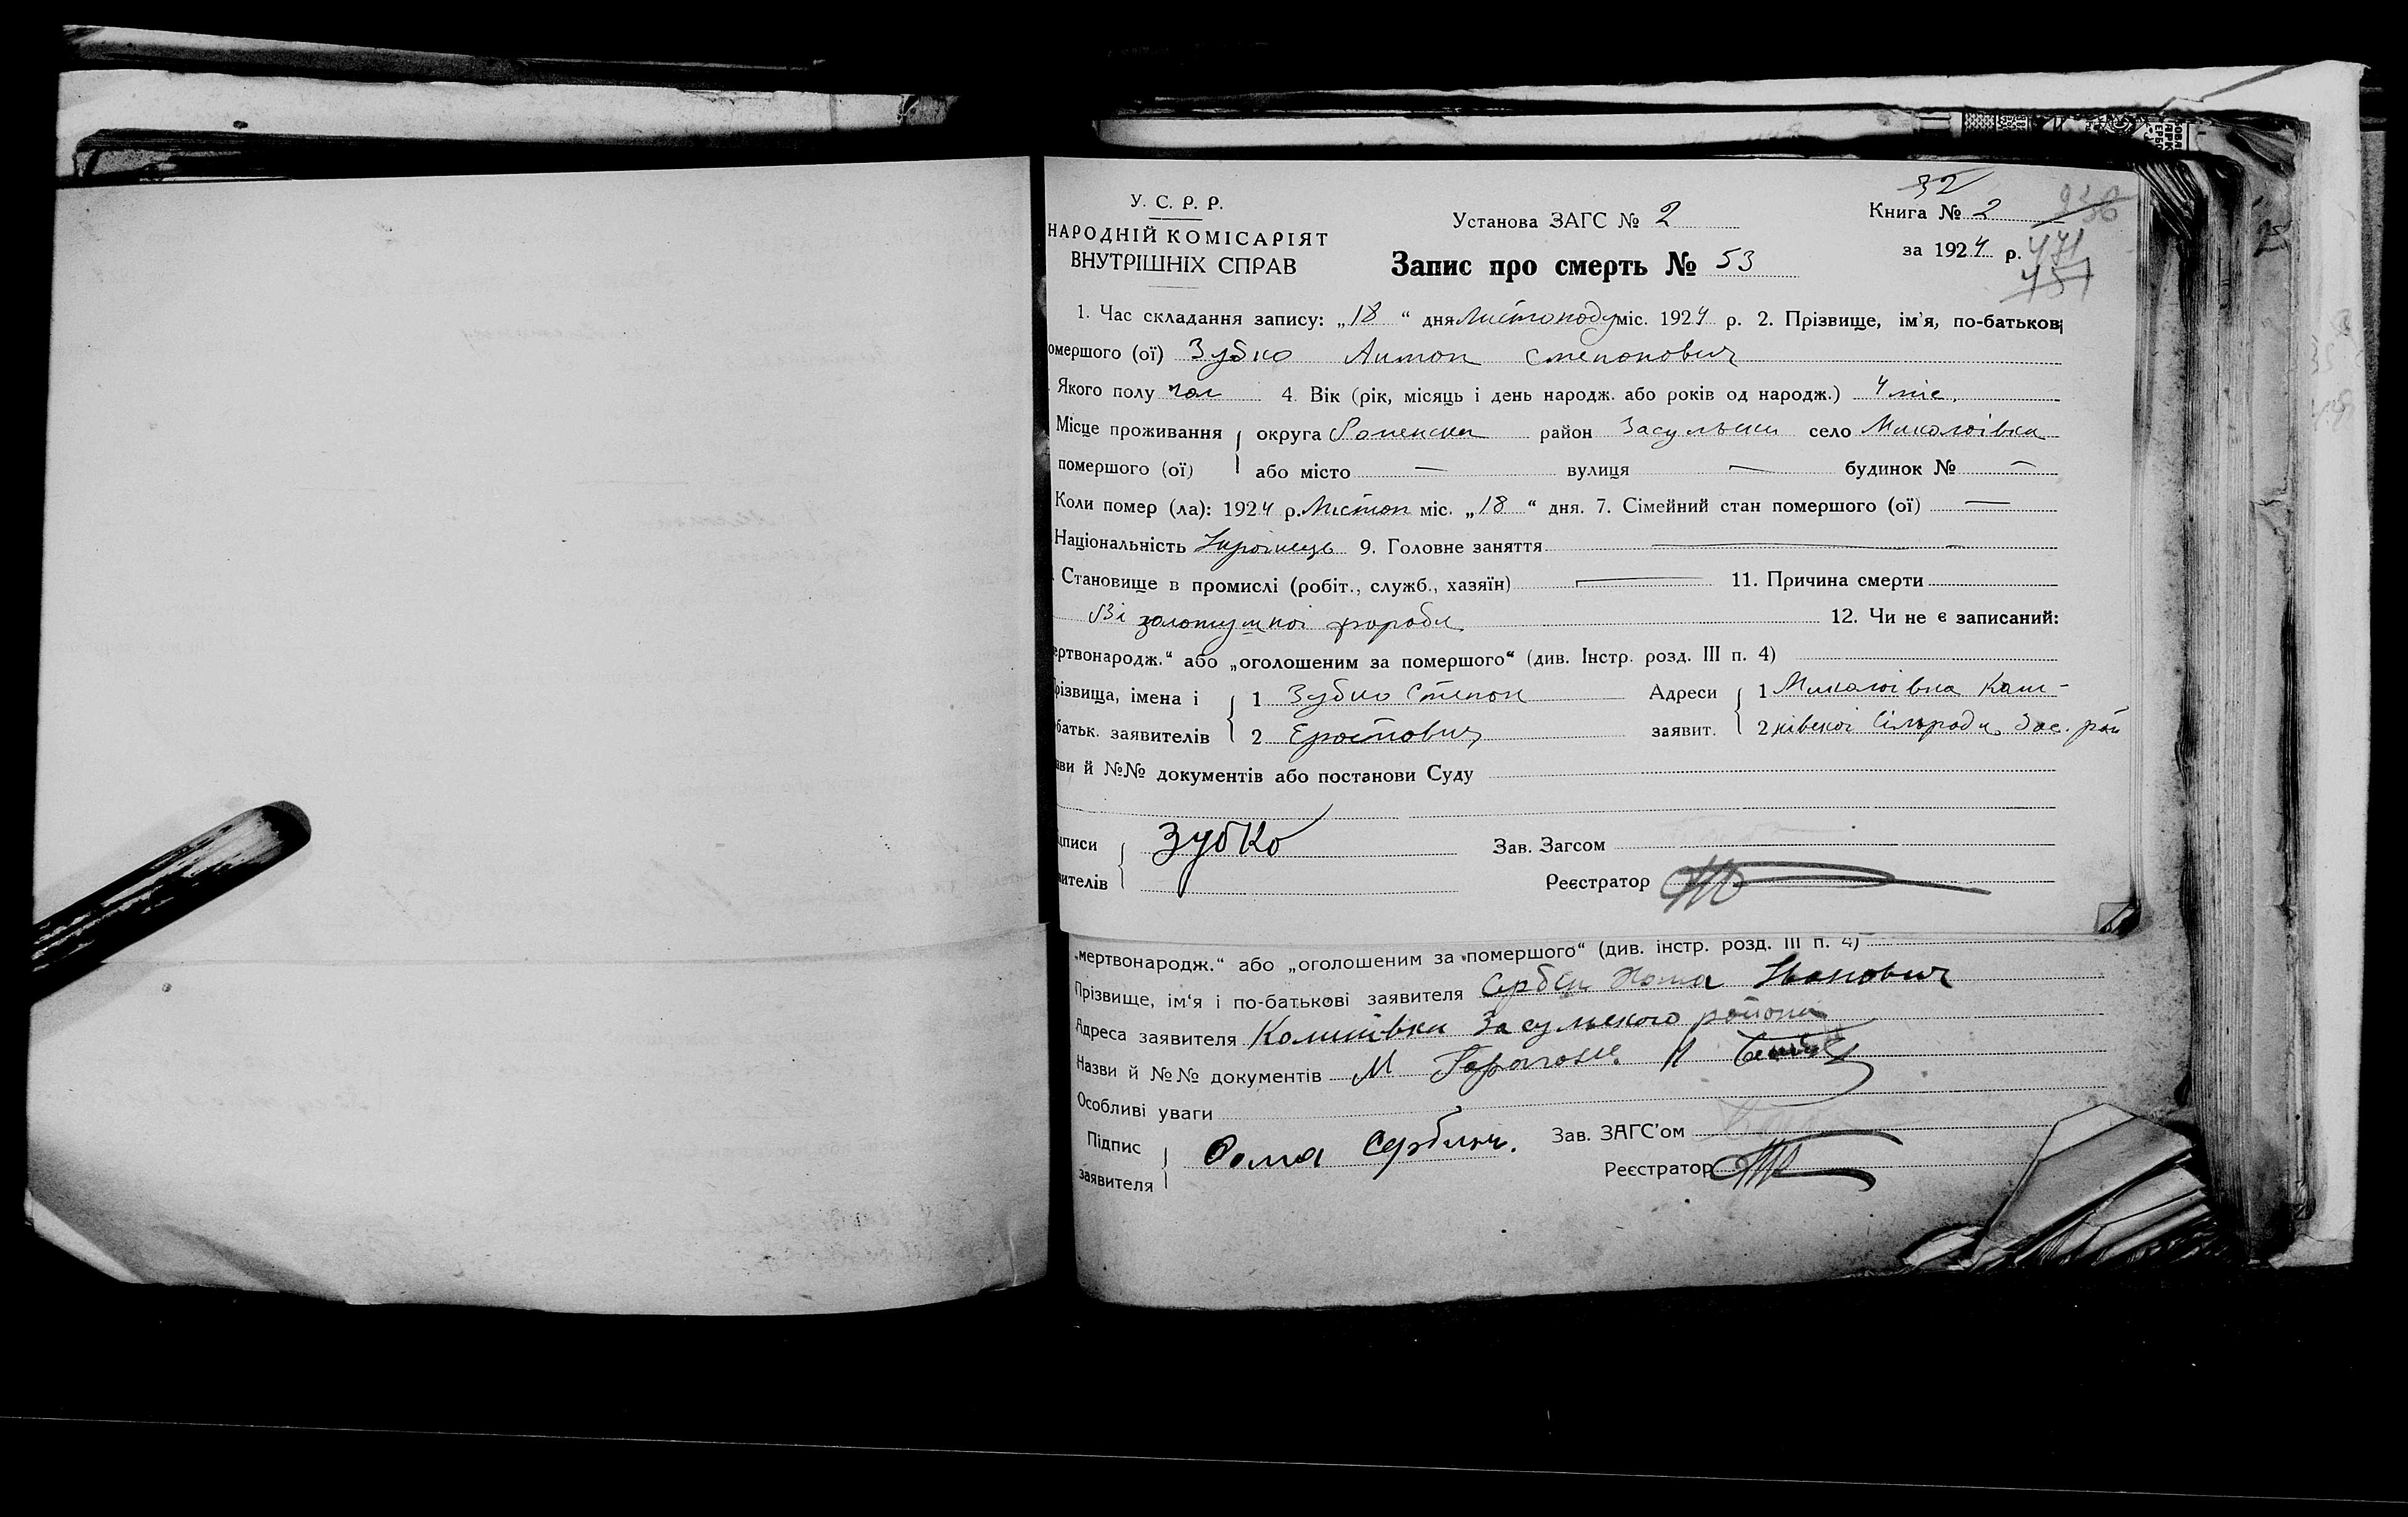 У. С. Р. Р.
НАРОДНІЙ КОМІСАРІЯТ
ВНУТРІШНІХ СПРАВ
Установа ЗАГС № 2
Запис про смерть № 53
32
Книга № 2
236
за 1924 р.
471
457
1. Час складання запису: „18“ дня Листопаду міс. 1924 р. 2. Прізвище, ім'я, по-батькові
омершого (ої) Зубко Антон Степанович
Якого полу чол 4. Вік (рік, місяць і день народж. або років од народж.) 4 міс.
Місце проживання округа Роменска район Засульски село Миколоівка
помершого (ої) або місто — вулиця — будинок № —
Коли помер (ла): 1924 р. Листоп міс. „18“ дня. 7. Сімейний стан помершого (ої) —
Національність Украінець 9. Головне заняття —
Становище в промислі (робіт., служб., хазяїн) — 11. Причина смерти
Ві золотушноі хороби 12. Чи не є записаний:
ертвонародж.“ або „оголошеним за помершого“ (див. Інстр. розд. III п. 4)
різвища, імена і 1 Зубко Степан Адреси 1 Миколоівка Каш-
батьк. заявителів 2 Еростович заявит. 2 ківскоі Сільради Зас. рай
ви й №№ документів або постанови Суду
дписи Зубко Зав. Загсом
вителів Реєстратор
„мертвонародж.“ або „оголошеним за помершого“ (див. інстр. розд. III п. 4)
Прізвище, ім'я і по-батькові заявителя Сербин Хома Іванович
Адреса заявителя Засульского района
Назви й №№ документів М
Особливі уваги
Підпис Фома Сербин. Зав. ЗАГС'ом
заявителя Реєстратор